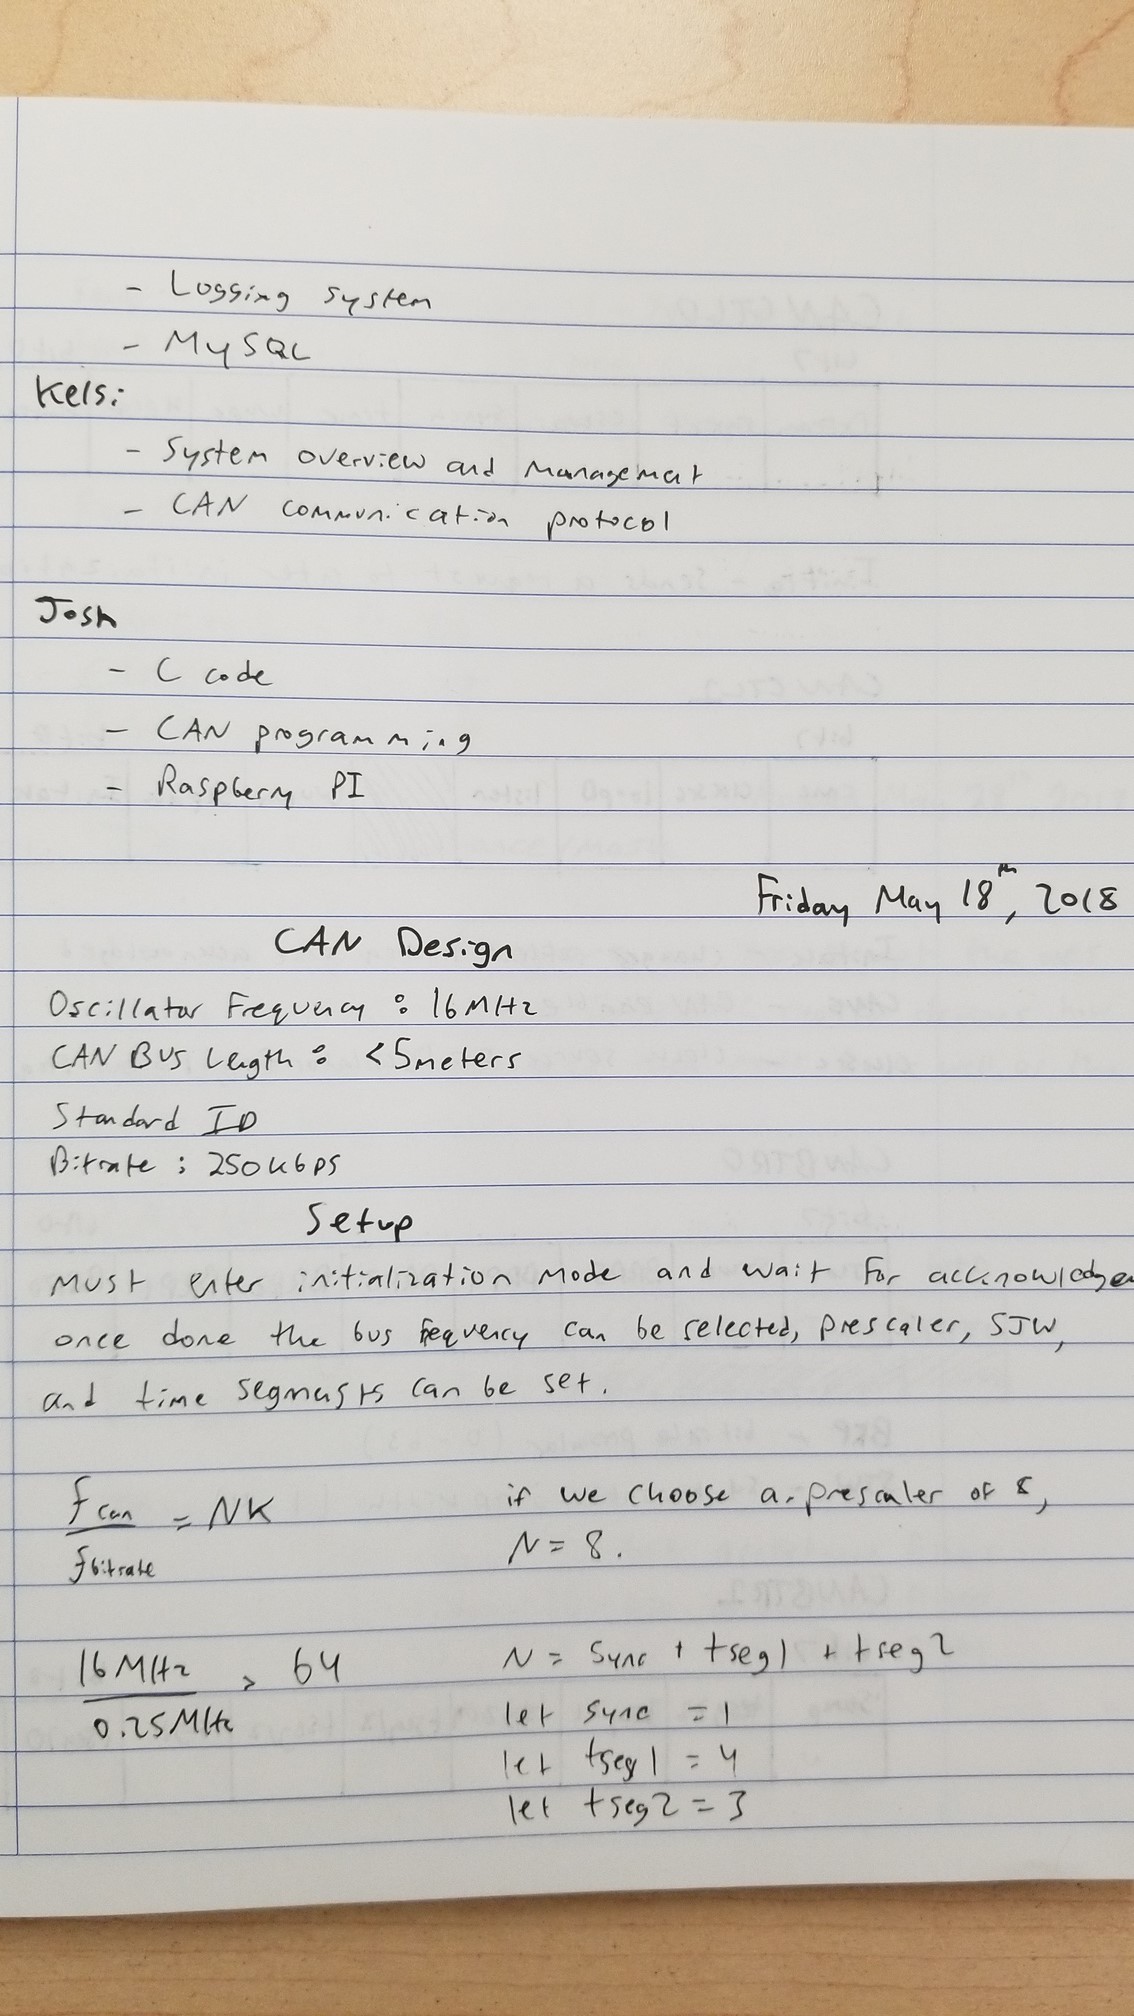 - Logging system
- MySQL
Kelsi
- System overview and Management
- CAN communication protocol
Josh
- C code
- CAN programming
- Raspberry PI
Friday May 18th, 2018
CAN Design
Oscillator Frequency : 16MHz
CAN BUS Length : <5meters
Standard ID
Bitrate : 250kbps
Setup
Must enter initialization mode and wait for acknowledge
once done the bus frequency can be selected, prescaler, SJW,
and time segments can be set.
fcan / fbitrate = NK
if we choose a prescaler of 8,
N = 8.
16MHz / 0.25MHz = 64
N = sync + tseg1 + tseg2
let sync = 1
let tseg1 = 4
let tseg2 = 3